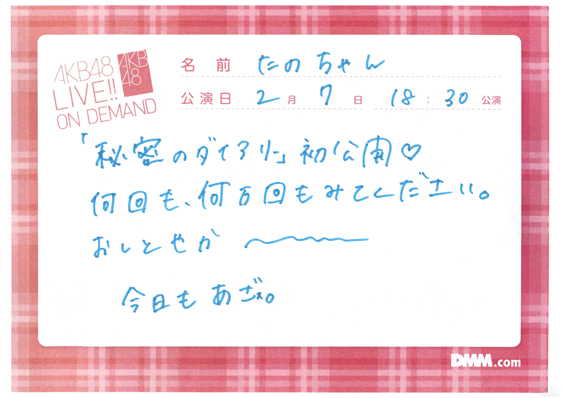 AKB48
LIVE!!
ON DEMAND
AKB
48
名前 たのちゃん
公演日 2月7日 18:30公演
「秘密のダイアリー」初公開♡
何回も、何万回もみてください。
おしとやか 〜
今日もあざ。
DMM.com